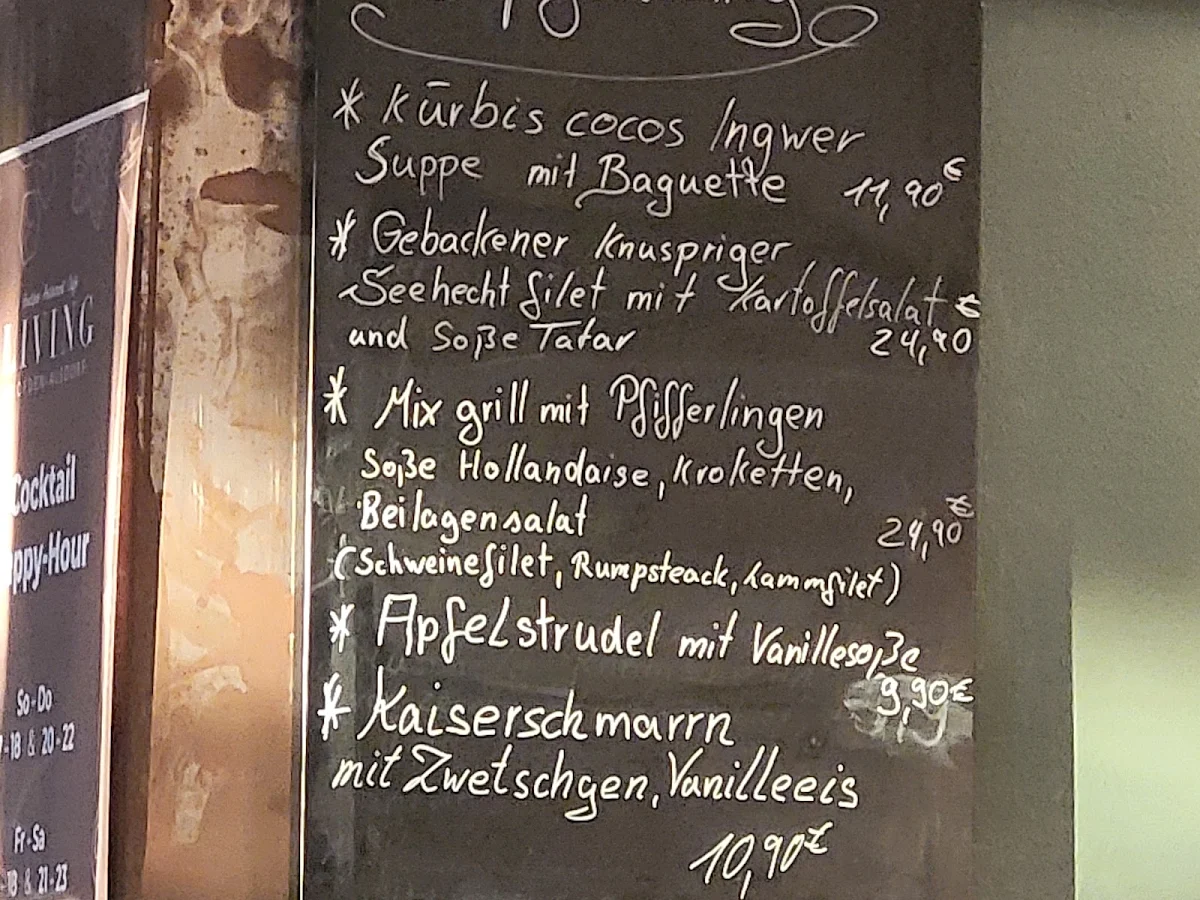 * Kürbis cocos Ingwer
Suppe mit Baguette 11,90€
* Gebackener Knuspriger
Seehecht filet mit Kartoffelsalat €
und Soße Tatar 24,90
* Mix grill mit Pfifferlingen
Soße Hollandaise, Kroketten,
Beilagensalat 24,90€
(Schweinefilet, Rumpsteack, Lammfilet)
* Apfelstrudel mit Vanillesoße
9,90€
* Kaiserschmarrn
mit Zwetschgen, Vanilleeis
10,90€
LIVING
Cocktail
ppy-Hour
So-Do
-18 & 20-22
Fr-Sa
-18 & 21-23